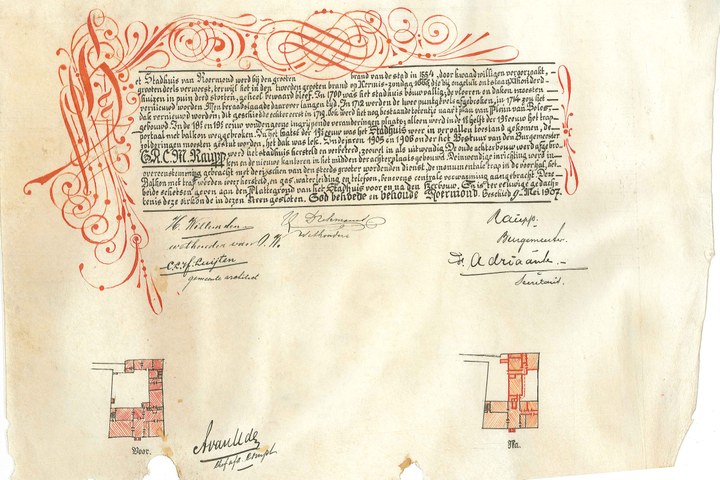 Het Stadhuis van Roermond werd bij den grooten brand van de stad in 1554, door kwaadwilligen veroorzaakt,
grootendeels verwoest, terwijl het in den tweeden grooten brand op Kermis-zondag 1665, die bij ongeluk ontstaan honderd-
huizen in puin deed storten, geheel bewaard bleef. In 1700 was het stadhuis bouwvallig; de vloeren en daken moesten
vernieuwd worden. Men beraadslaagde daarover langen tijd. In 1712 werden de twee puntgevels afgebroken, in 1714 zou het
dak vernieuwd worden; dit geschiedde echter eerst in
gebouwd. In de 18e en 19e eeuw vonden eenige ingrijpende veranderingen plaats; alleen werd in de helft der 19e eeuw het trap-
portaal met balkon weggebroken. In het laatst der 19e eeuw was het Stadhuis weer in vervallen toestand gekomen, de
zolderingen moesten gestut worden, het dak was lek. In de jaren 1905 en 1906 onder het Bestuur van den Burgemeester
G.K.C.M. Raupp werd het stadhuis hersteld en verbeterd, zoowel in- als uitwendig. De oude achterbouw werd afgebro-
ken en de nieuwe kantoren in het midden der achterplaats gebouwd. De inwendige inrichting werd in
overeenstemming gebracht met de eischen van den steeds grooter wordenden dienst, de monumentale trap in de voorhal, het
Balkon met trap werden weer hersteld, en gas, waterleiding en telefoon, benevens centrale verwarming aangebracht. Den
beide schetsen geven aan den Plattegrond van het Stadhuis voor en na den Verbouw. En is ter eeuwige gedach-
tenis deze oirkonde in dezen steen gesloten. God behoede en behoude Roermond. Geschied 9 Mei 1907.
H. Willender
wethouder van O.W.
Wethouder
Raupp.
Burgemeester.
C.C.H.J. Luijten
gemeente architect
Adriaänte.
Secretaris.
Voor.
Na.